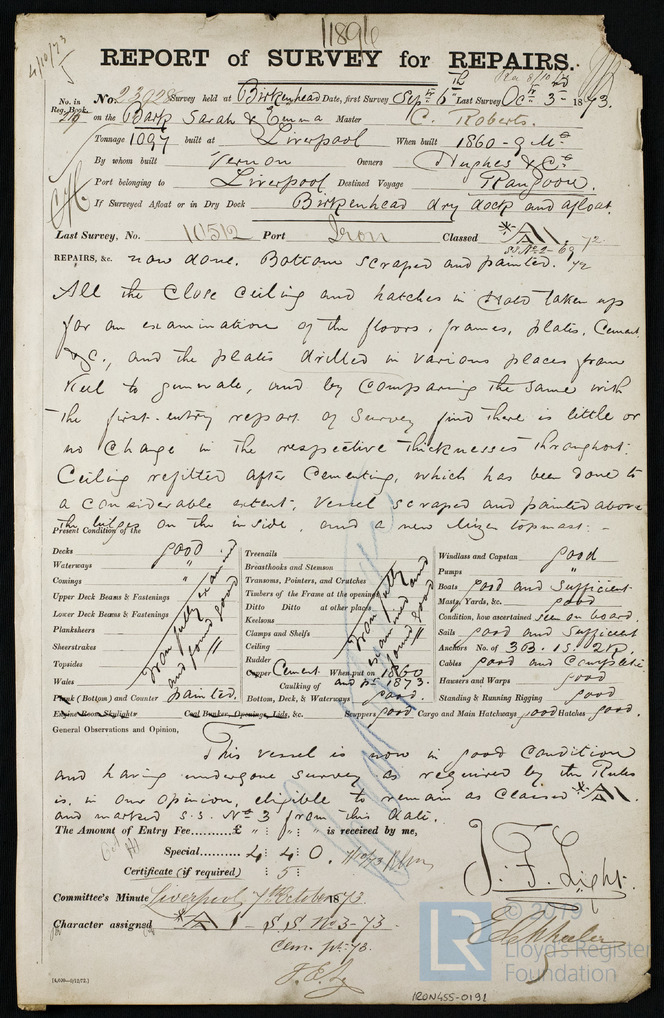 11896
4/10/73
REPORT of SURVEY for REPAIRS.
No. in Reg. Book. 219
No. 23928 Survey held at Birkenhead Date, first Survey Sepr 6th Last Survey Octr 3rd 1873.
on the Bark Sarah & Emma Master C. Roberts.
Tonnage 1097 built at Liverpool When built 1860-9 Mo
By whom built Vernon Owners Hughes & Co
Port belonging to Liverpool Destined Voyage Rangoon.
If Surveyed Afloat or in Dry Dock Birkenhead dry dock and afloat.
Last Survey, No. 10512 Port Iron Classed *A1. 72
S.S. No 2-69
72
REPAIRS, &c. now done. Bottom scraped and painted.
All the Close Ceiling and hatches in Hold taken up
for an examination of the floors, frames, plates, Cement
&c., and the plates drilled in various places from
Keel to gunwale, and by Comparing the same with
the first entry report of Survey find there is little or
no Change in the respective thicknesses throughout.
Ceiling refitted after Cementing, which has been done to
a considerable extent, Vessel scraped and painted above
the bilges on the inside, and a new mizen topmast.
Present Condition of the
Decks good
Waterways "
Comings "
Upper Deck Beams & Fastenings
Lower Deck Beams & Fastenings
Planksheers
Sheerstrakes
Topsides
Wales
Iron fully examined and found good
Plank (Bottom) and Counter painted.
Engine Room Skylights Coal Bunker, Openings, Lids, &c.
Treenails
Breasthooks and Stemson
Transoms, Pointers, and Crutches
Timbers of the Frame at the openings
Ditto Ditto at other places
Keelsons
Clamps and Shelfs
Ceiling
Rudder
Iron fully examined and found good
Copper Cement When put on 1860
Caulking of and pt 1873.
Bottom, Deck, & Waterways good.
Scuppers good Cargo and Main Hatchways good Hatches good.
Windlass and Capstan good
Pumps "
Boats good and sufficient
Masts, Yards, &c. good
Condition, how ascertained seen on board.
Sails good and sufficient
Anchors No. of 3B. 1S. 2K.
Cables good and Complete
Hawsers and Warps good
Standing & Running Rigging good
General Observations and Opinion,
This vessel is now in good Condition
and having undergone Survey as required by the Rules
is, in our opinion, eligible to remain as Classed *A1.
and marked S.S. No 3 from this date.
The Amount of Entry Fee........£ " : " : " is received by me,
Special.......... 4 : 4 : 0.
Certificate (if required) : 5 :
J. F. Light.
Committee's Minute Liverpool 7th October 1873.
Character assigned *A1 - S S No 3-73
Cem. pt. 73.
[4,000-2/12/72.]
© 2019
LR
Lloyd's Register
Foundation
IRON455-0191